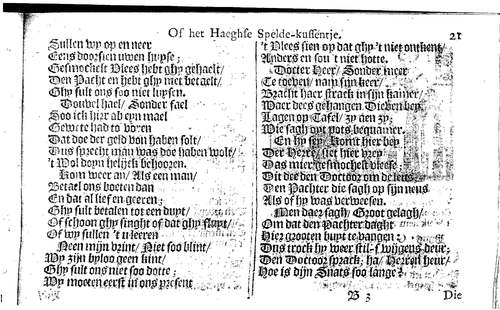 Of het Haeghse Spelde-kussentje. 21
Sullen wy op en neer
Eens doorsien uwen huyse;
Gesmockelt Vlees hebt ghy gehaelt/
Den Pacht en hebt ghy niet betaelt/
Ghy sult ons soo niet huysen.
Douwel hael/ Sonder fael
Soo ick hier ab eyn mael
Gewete had to voren
Dat doe der geld von haben solt/
Duts sprecht man was doe haben wolt/
't Wol doyn helijck behooren.
Kom weer an/ Als een man/
Betael ons boeten dan
En dat al lief en geeren;
Ghy sult betalen tot een duyt/
Of schoon ghy singht of dat ghy fluyt/
Of wy sullen 't u leeren
Neen mijn vrint/ Niet soo blint/
Wy zijn byloo geen kint
Ghy sult ons niet soo dotte;
Wy moeten eerst in ons present
't Vlees sien op dat ghy 't niet ontkent/
Anders en sou 't niet hotte.
Docter Heer/ Sonder meer
Te roepen/ nam zijn keer/
Bracht haer strack in sijn kamer/
Maer dees gehangen Dieven bey
Lagen op Tafel/ zy aen zy;
Wie sagh oyt pots bequamer.
En hy sey/ Komt hier bey
Der Herre/ siet hier vrey
Das mier gesmockelt vleese;
Dit dee den Doctoor om de leus
Den Pachter die sagh op sijn neus
Als of hy was verweesen.
Men daer sagh/ Groot gelagh/
Om dat den Pachter daght
Hier grooten buyt te vangen:
Dus trock hy weer stil-swijgens deur;
Den Doctoor sprack; ha/ Herren heur/
Hoe is dijn Snats soo lange?
B 3 Die